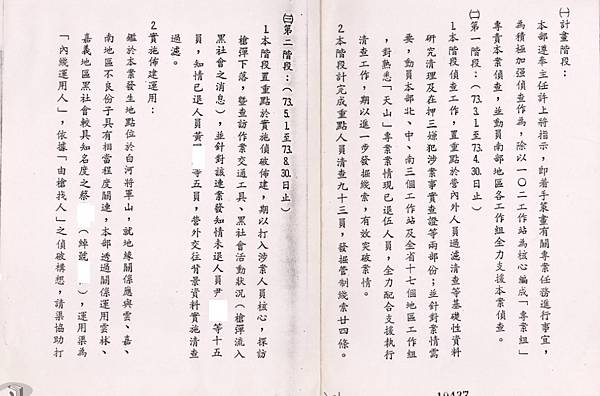 ㈠計畫階段：
本部遵奉主任許上將指示，即著手策畫有關專案任務進行事宜，
為積極加強偵查作為，除以一〇二工作站為核心編成「專案組」
專責本案偵查，並動員南部地區各工作組全力支援本案偵查。
㈡第一階段：（73.3.1.至73.4.30.日止）
1本階段偵查工作，置重點於營內外人員過濾清查等基礎性資料
研究清理及在押三嫌犯涉案事實查證等兩部份；並針對案情需
要，動員本部北、中、南三個工作站及全省十七個地區工作組
，對熟悉「天山」專案案情現已退伍人員，全力配合支援執行
清查工作，期以進一步發掘線索，有效突破案情。
2本階段計完成重點人員清查九十三員，發掘管制線索廿四條。
19437
㈢第二階段：（73.5.1.至73.8.30.日止）
1本階段置重點於實施偵破佈建，期以打入涉案人員核心，探訪
槍彈下落，暨查訪作案交通工具、黑社會活動狀況（槍彈流入
黑社會之消息），並針對該連案發知情未退人員尹 等十五
員，知情已退人員黃 等五員，營外交往背景資料實施清查
過濾。
2實施佈建運用：
鑑於本案發生地點位於白河將軍山，就地緣關係應與雲、嘉、
南地區不良份子具有相當程度關連，本部透過關係運用雲林、
嘉義地區黑社會較具知名度之蔡 （綽號 ），運用渠為
「內綫運用人」，依據「由槍找人」之偵破構想，請渠協助打